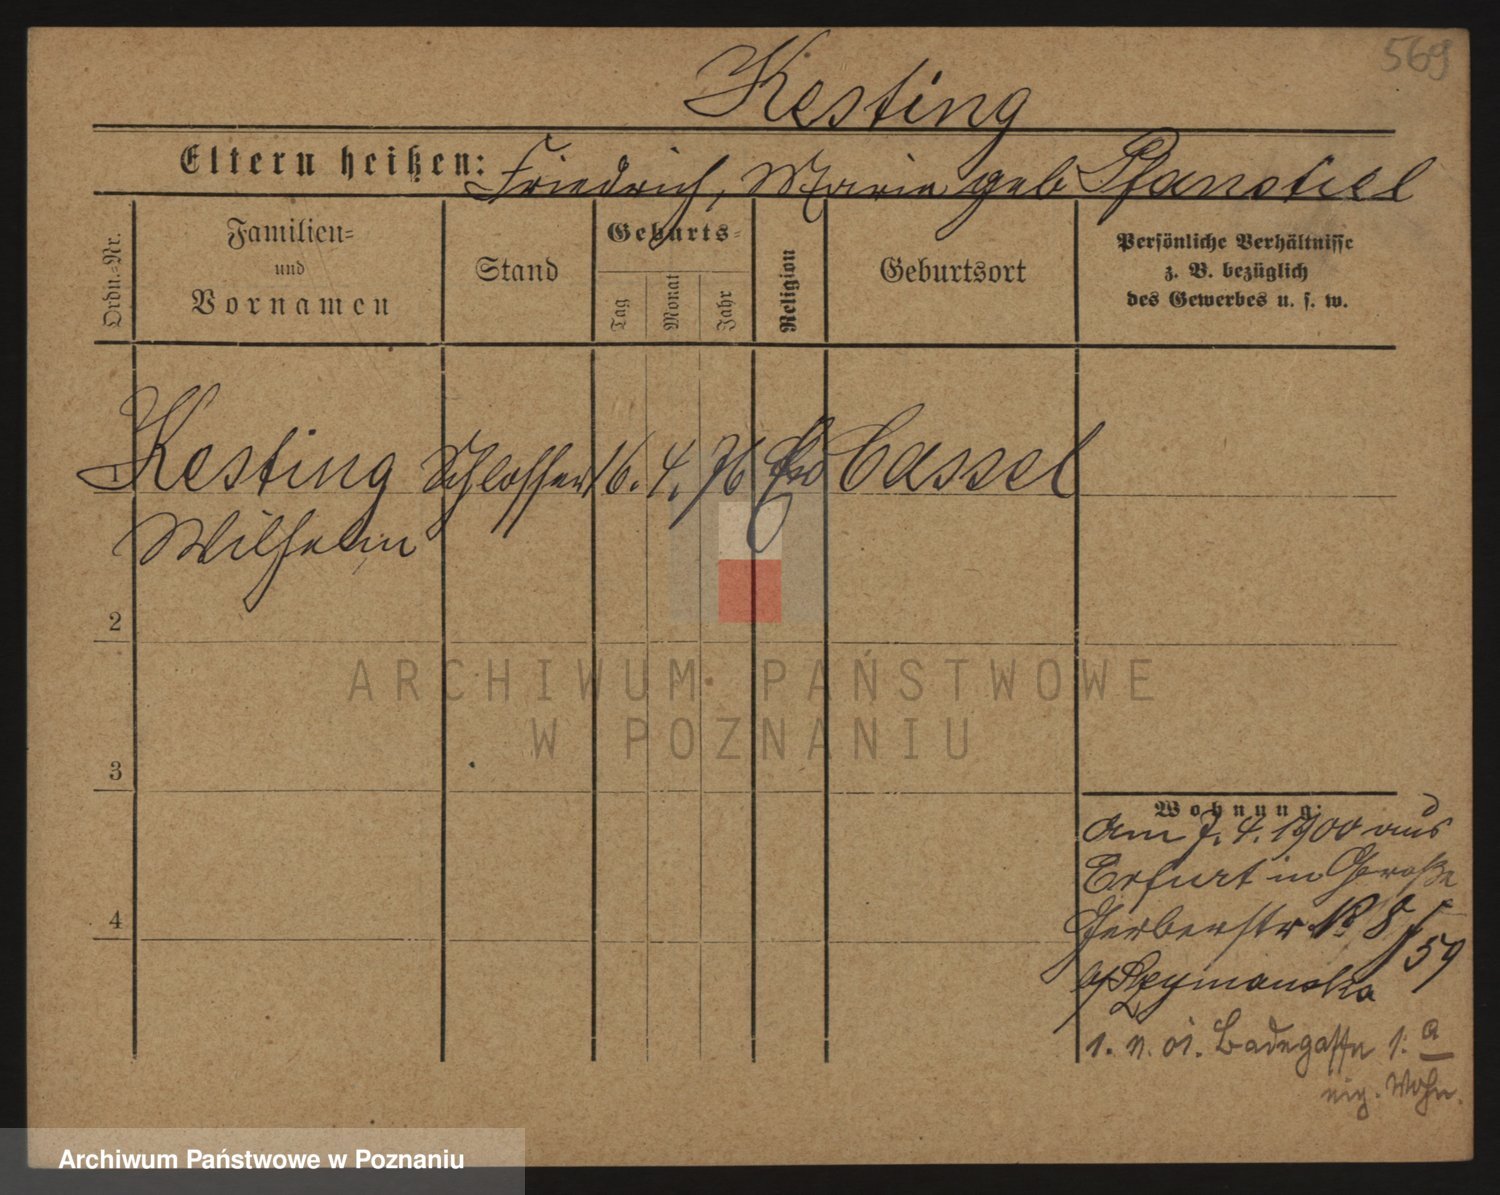 569
Kesting
Eltern heißen: Friedrich, Marie geb Pfanstiel
Ordn.-Nr.
Familien- und Vornamen
Stand
Geburts-
Tag
Monat
Jahr
Religion
Geburtsort
Persönliche Verhältnisse
z. B. bezüglich
des Gewerbes u. s. w.
1 Kesting Schlosser 16. 4. 76 Cassel
Wilhelm
2
3
4
Wohnung:
am 7. 4. 1900 aus
Erfurt in Große
Gerberstr No 8
59
b/ Szymanska
1. 4. 01. Badegasse 1. a
eig. Wohn.
ARCHIWUM PAŃSTWOWE
W POZNANIU
Archiwum Państwowe w Poznaniu